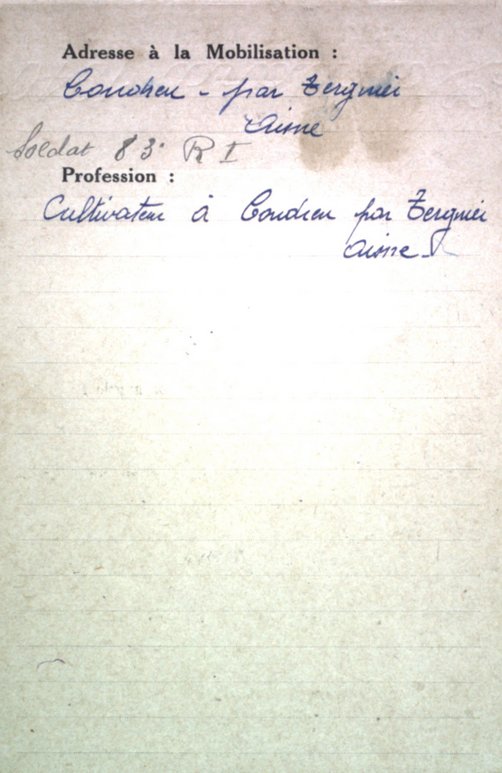 Adresse à la Mobilisation :
Condren - par Tergnier
Aisne
Soldat 83e R I
Profession :
Cultivateur à Condren par Tergnier
Aisne